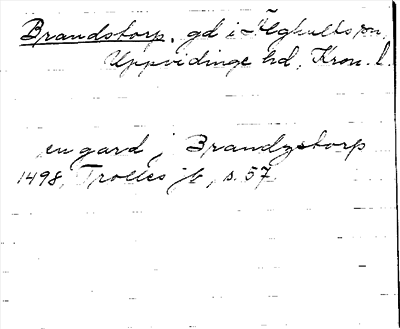 Brandstorp, gd i Älghults sn,
Uppvidinge hd, Kron. l.
en gard j Brandzstorp
1498, Trolles jb, s. 57.